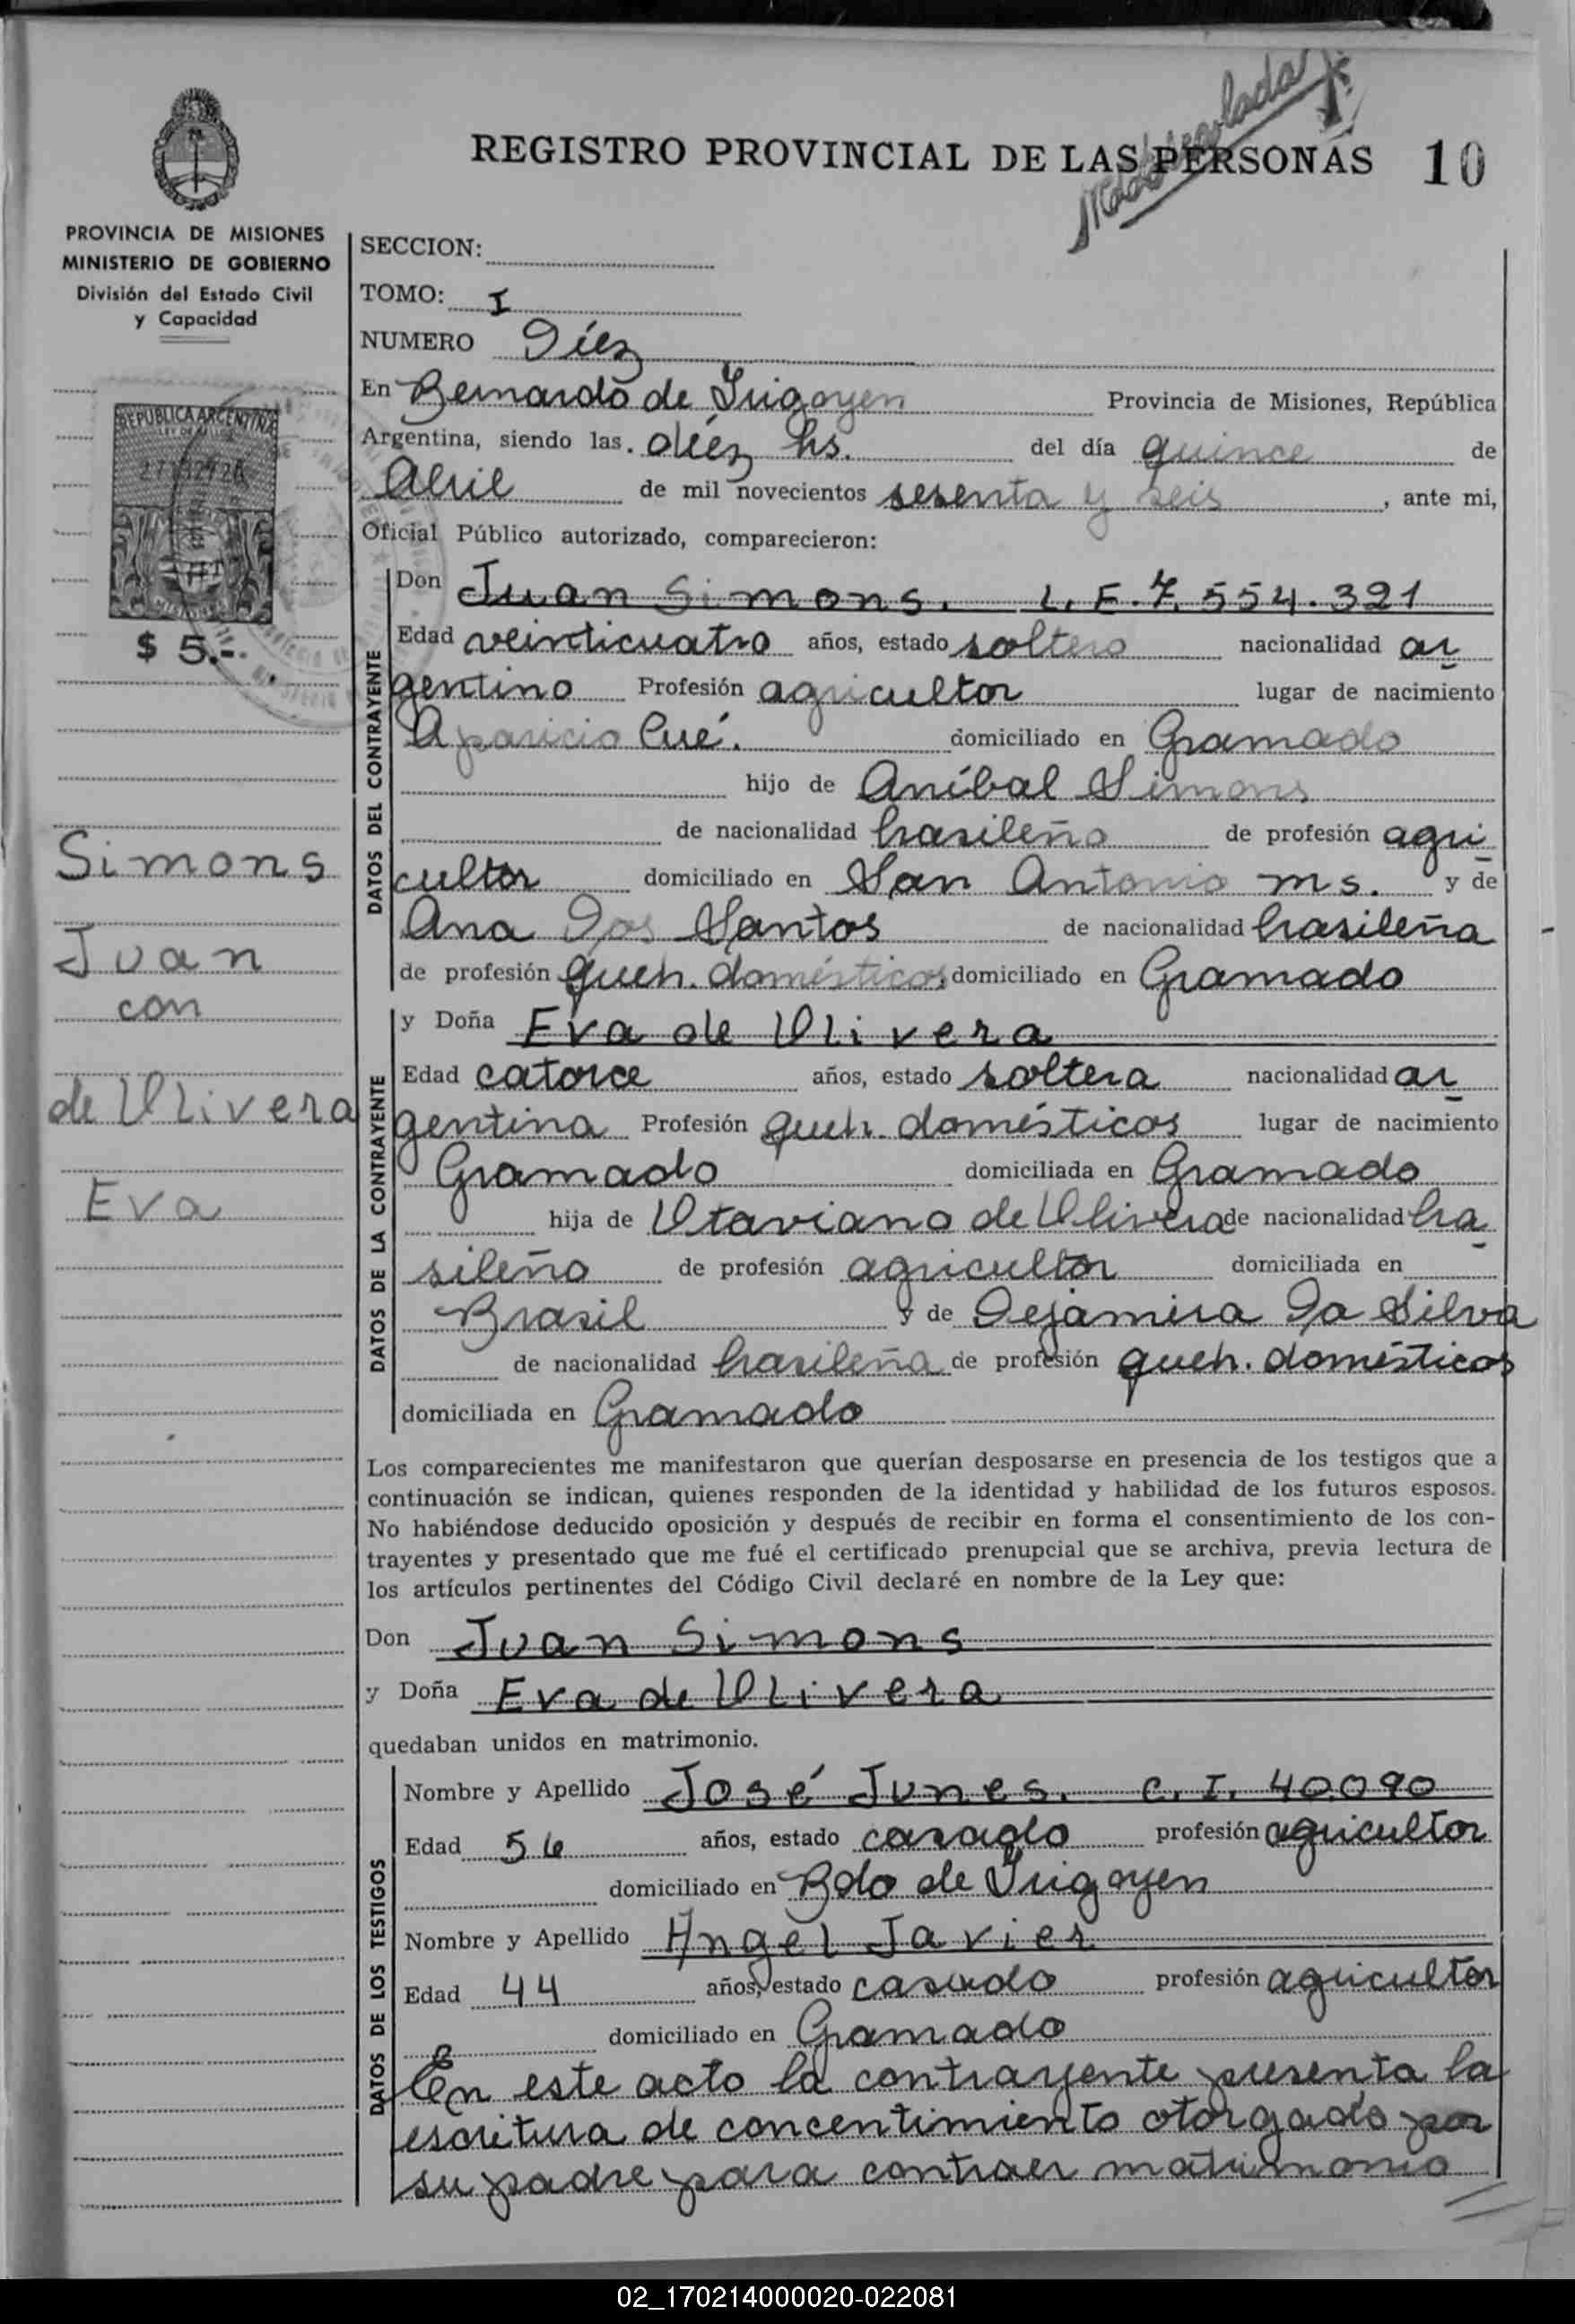 REGISTRO PROVINCIAL DE LAS PERSONAS 10
PROVINCIA DE MISIONES
MINISTERIO DE GOBIERNO
División del Estado Civil
y Capacidad
REPUBLICA ARGENTINA
$ 5.-
Simons
Juan
con
de Olivera
Eva
SECCION:
TOMO: I
NUMERO Diéz
En Bernardo de Irigoyen Provincia de Misiones, República
Argentina, siendo las diéz hs. del día quince de
Abril de mil novecientos sesenta y seis, ante mi,
Oficial Público autorizado, comparecieron:
DATOS DEL CONTRAYENTE
Don Juan Simons. L. E. 7.554.321
Edad veinticuatro años, estado soltero nacionalidad ar
gentino Profesión agricultor lugar de nacimiento
Aparicio Cué. domiciliado en Gramado
hijo de Aníbal Simons
de nacionalidad brasileño de profesión agri
cultor domiciliado en San Antonio ms. y de
Ana Dos Santos de nacionalidad brasileña
de profesión queh. domésticos, domiciliado en Gramado
DATOS DE LA CONTRAYENTE
y Doña Eva de Olivera
Edad catorce años, estado soltera nacionalidad ar
gentina Profesión queh. domésticos lugar de nacimiento
Gramado domiciliada en Gramado
hija de Otaviano de Olivera de nacionalidad bra
sileño de profesión agricultor domiciliada en
Brasil y de Dejamira Da Silva
de nacionalidad brasileña de profesión queh. domésticos
domiciliada en Gramado
Los comparecientes me manifestaron que querían desposarse en presencia de los testigos que a
continuación se indican, quienes responden de la identidad y habilidad de los futuros esposos.
No habiéndose deducido oposición y después de recibir en forma el consentimiento de los con-
trayentes y presentado que me fué el certificado prenupcial que se archiva, previa lectura de
los artículos pertinentes del Código Civil declaré en nombre de la Ley que:
Don Juan Simons
y Doña Eva de Olivera
quedaban unidos en matrimonio.
DATOS DE LOS TESTIGOS
Nombre y Apellido José Junes. C. I. 40090
Edad 56 años, estado casado profesión agricultor
domiciliado en Bdo de Irigoyen
Nombre y Apellido Angel Javier
Edad 44 años, estado casado profesión agricultor
domiciliado en Gramado
En este acto la contrayente presenta la
escritura de concentimiento otorgado por
su padre para contraer matrimonio
02_170214000020-022081